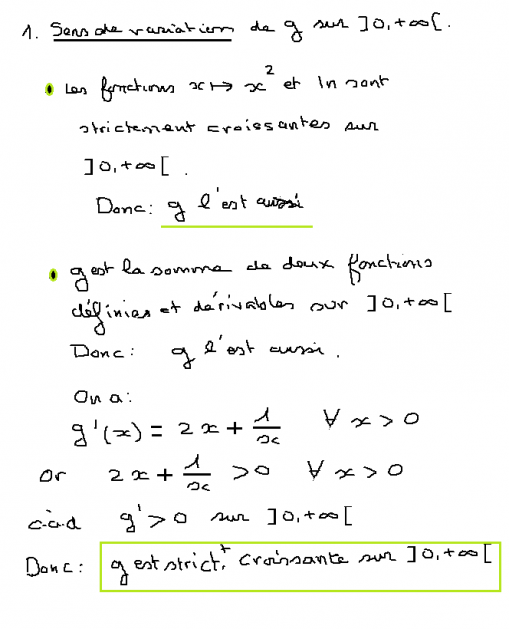 1. Sens de variation de g sur ]0,+∞[.
• Les fonctions x ↦ x² et ln sont
strictement croissantes sur
]0,+∞[.
Donc : g l'est aussi
• g est la somme de deux fonctions
définies et dérivables sur ]0,+∞[
Donc : g l'est aussi.
On a :
g'(x) = 2x + 1/x ∀ x > 0
Or 2x + 1/x > 0 ∀ x > 0
c-à-d g' > 0 sur ]0,+∞[
Donc : g est strict.t croissante sur ]0,+∞[